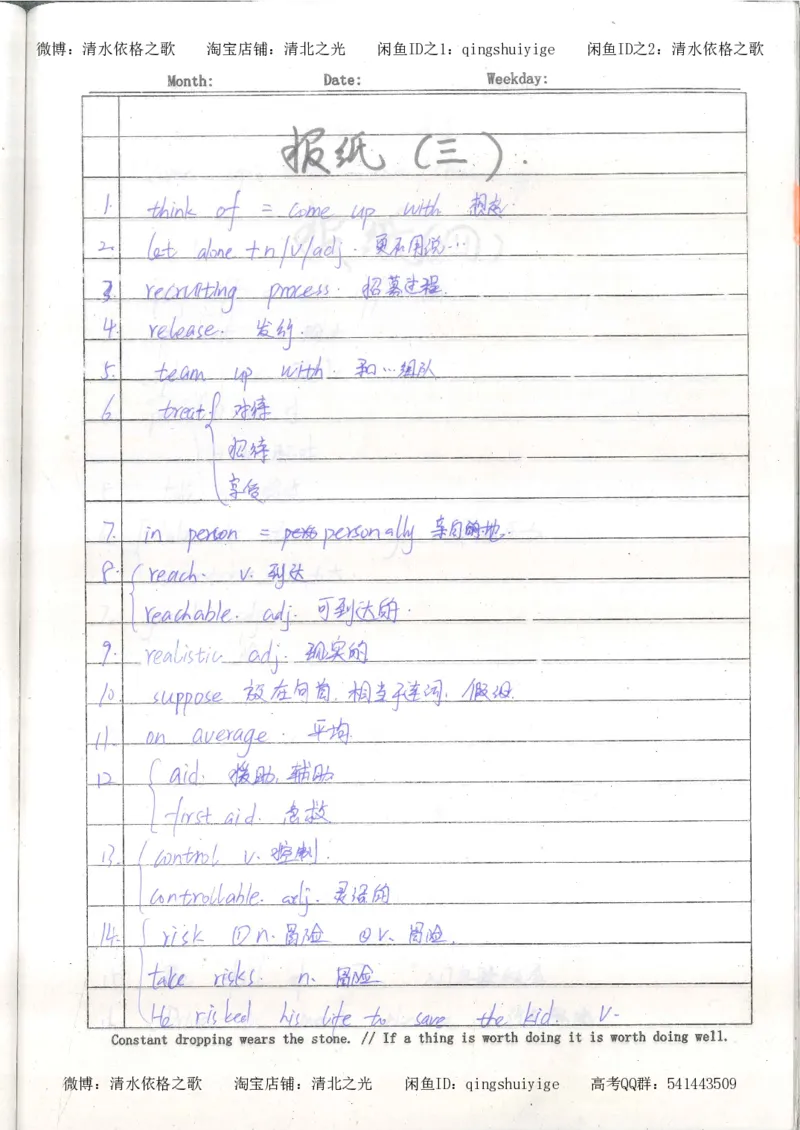 微博：清水依格之歌 淘宝店铺：清北之光 闲鱼ID之1：qingshuiyige 闲鱼ID之2：清水依格之歌
Month: Date: Weekday:
报纸（三）.
1. think of = come up with 想起.
2. let alone + n/v/adj. 更不用说…
3. recruiting process. 招募过程.
4. release. 发行.
5. team up with. 和…组队
6 treat { 对待
招待
享受
7. in person = personally 亲自的地.
8. { reach. v. 到达
reachable. adj. 可到达的.
9. realistic adj. 现实的
10. suppose 放在句首, 相当于连词, 假设.
11. on average. 平均.
12 { aid. 援助, 辅助
first aid. 急救
13. { control v. 控制.
controllable. adj. 灵活的
14. { risk ①n. 冒险 ②v. 冒险.
take risks. n. 冒险
He risked his life to save the kid. v.
Constant dropping wears the stone. // If a thing is worth doing it is worth doing well.
微博：清水依格之歌 淘宝店铺：清北之光 闲鱼ID：qingshuiyige 高考QQ群：541443509